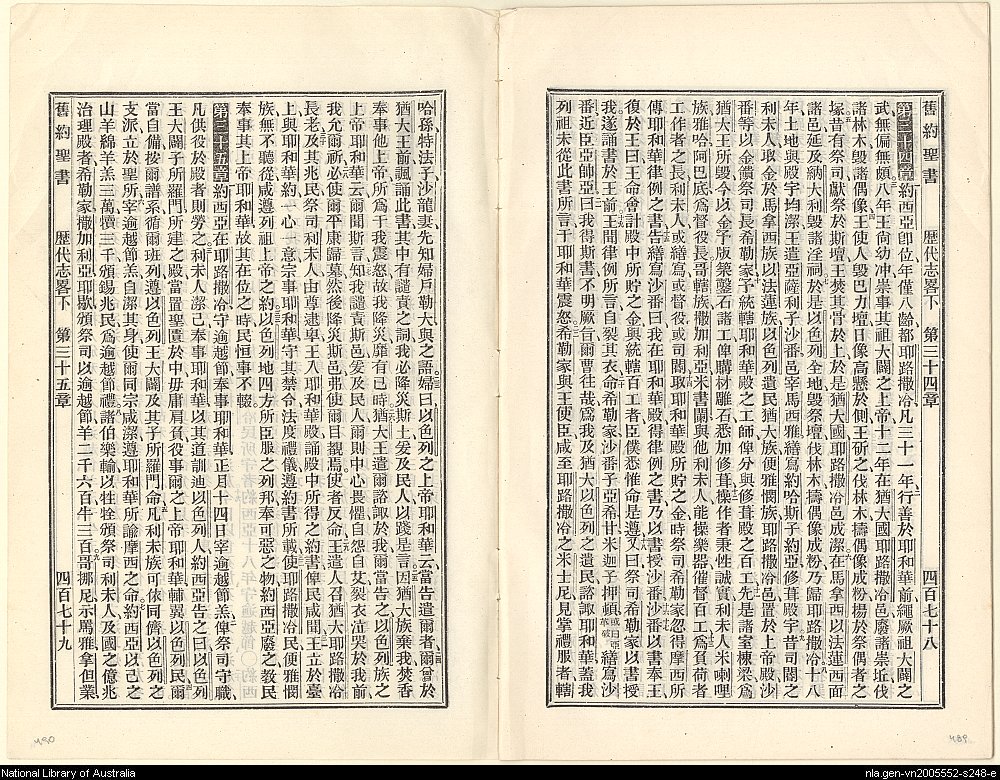 舊約聖書 歷代志畧下 第三十四章 四百七十八
第三十四章約西亞卽位年僅八齡都耶路撒冷凡三十一年行善於耶和華前繩厥祖大闢之
武無偏無頗八年王尙幼冲崇事其祖大闢之上帝十二年在猶大國耶路撒冷邑廢諸崇坵伐
諸林木毀諸偶像王使人毀巴力壇日像高懸於側王斫之伐林木擣偶像成粉揚於祭偶者之
塚昔有祭司獻祭於斯壇王焚其骨於上於是猶大國耶路撒冷邑成潔在馬拿西以法蓮西面
諸邑延及納大利毀諸淫祠於是以色列全地毀祭壇伐林木擣偶像成粉乃歸耶路撒冷十八
年土地與殿宇均潔王遣亞薩利子沙番邑宰馬西雅繕寫約哈斯子約亞修葺殿宇昔司閽之
利未人取金於馬拿西族以法蓮族以色列遺民猶大族便雅憫族耶路撒冷邑置於上帝殿沙
番等以金饋祭司長希勒家予統轄耶和華殿之工師俾分與修葺殿之百工先是諸室棟梁爲
猶大王所毀今以金予版築鑿石諸工俾購材雕石悉加修葺操作者秉性誠實利未人米喇哩
族雅哈阿巴底爲督役長哥轄族撒加利亞米書蘭與他利未人能操樂器催督百工爲負荷者
工作者之長利未人或繕寫或督役或司閽取耶和華殿所貯之金時祭司希勒家忽得摩西所
傳耶和華律例之書告繕寫沙番曰我在耶和華殿得律例之書乃以書授沙番沙番以書奉王
復於王曰王命會計殿中所貯之金與統轄百工者臣僕悉惟命是遵又曰祭司希勒家以書授
我遂誦書於王前王聞律例所言自裂其衣命希勒家沙番子亞希甘米迦子押頓或曰亞革破繕寫沙
番近臣亞亞師亞曰我得斯書不明厥旨爾曹往哉爲我及猶大以色列之遺民諮諏耶和華蓋我
列祖未從此書所言干耶和華震怒希勒家與王使臣咸至耶路撒冷之米士尼見堂禮服者轄
哈孫特法子沙龍妻先知婦戶勒大與之語婦曰以色列之上帝耶和華云當告遣爾者爾曾於
猶大王前諷誦此書其中有譴責之詞我必降災斯土爰及民人以踐是言因猶大族棄我焚香
奉事他上帝所爲干我震怒故我降災靡有已時猶大王遣爾諮諏於我爾當告之以色列族之
上帝耶和華云爾聞斯言知我譴責斯邑爰及民人爾則中心畏懼自怨自艾裂衣泣哭於我前
我允爾祈必使爾平康歸墓然後降災斯邑弗使爾目覩焉使者反命王遣人召猶大耶路撒冷
長老及其兆民祭司利未人由尊逮卑王入耶和華殿誦殿中所得之約書俾民咸聞王立於臺
上與耶和華約一心一意宗事耶和華守其禁令法度禮儀遵約書所載使耶路撒冷民便雅憫
族無不聽從咸遵列祖上帝之約以色列地四方所臣服之列邦奉可惡之物約西亞廢之敎民
奉事其上帝耶和華故其在位之時民恒事不輟
第三十五章約西亞在耶路撒冷守逾越節奉事耶和華正月十四日宰逾越節羔俾祭司守職
凡供役於殿者則勞之利未人潔己奉事耶和華以其道訓迪以色列人約西亞告之曰以色列
王大闢子所羅門所建之殿當置聖匱於中毋庸肩負役事爾之上帝耶和華輔翼以色列民爾
當自備按爾譜系循爾班列遵以色列王大闢及其子所羅門命凡利未族可依同儕以色列之
支派立於聖所宰逾越節羔自潔其身使爾同宗咸潔遵耶和華所諭摩西之命約西亞以己之
山羊綿羊羔三萬犢三千頒錫兆民爲逾越節禮諸伯樂輸以牲頒祭司利未人及國之億兆
治理殿者希勒家撒加利亞耶歇頒祭司以逾越節羊二千六百牛三百哥挪尼示罵雅拿但業
舊約聖書 歷代志畧下 第三十五章 四百七十九
490
489
National Library of Australia
nla.gen-vn2005552-s248-e